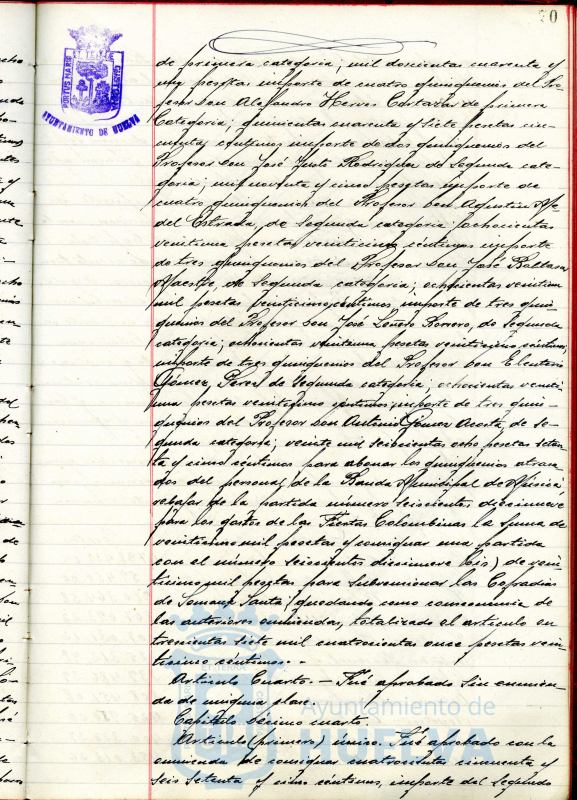 70
PORTUS MARIS ET TERRE CUSTODIA
AYUNTAMIENTO DE HUELVA
de primera categoría; mil doscientas cuarenta y
una pesetas importe de cuatro quinquenios del Pro-
fesor Don Alejandro Hervas de primera
Categoría; quinientas cuarenta y siete pesetas cin-
cuenta céntimos importe de dos quinquenios del
Profesor Don José Justo Rodriguez de Segunda cate-
goria; mil noventa y cinco pesetas importe de
cuatro quinquenios del Profesor Don Agustin
del Estrada, de Segunda categoria; ochocientas
veintiuna pesetas veinticinco céntimos importe
de tres quinquenios del Profesor Don José Baltasar
Maestre, de Segunda categoria; ochocientas veintiun
mil pesetas veinticinco céntimos importe de tres quin-
quenios del Profesor Don José Borrero, de Segunda
categoria; ochocientas veintiuna pesetas veinticinco céntimos;
importe de tres quinquenios del Profesor Don Eleuterio
Gómez Perez de Segunda categoria; ochocientas veinti-
una pesetas veinticinco céntimos importe de tres quin-
quenios del Profesor Don Antonio Gómez Acosta, de se-
gunda categoria; veinte mil seiscientas ocho pesetas seten-
ta y cinco céntimos para abonar los quinquenios atrasa-
dos del personal de la Banda Municipal de Música;
rebajar de la partida número seiscientos diecinueve
para los gastos de las Fiestas Colombinas la suma de
veinticinco mil pesetas y consignar una partida
con el número seiscientos diecinueve bis) de vein-
ticinco mil pesetas para subvencionar las Cofradias
de Semana Santa; quedando, como consecuencia de
las anteriores enmiendas, totalizado el artículo en
trescientas siete mil cuatrocientas once pesetas vein-
ticinco céntimos.-
Artículo Cuarto.- Fué aprobado sin enmien-
da de ninguna clase.
Capítulo Décimo cuarto.
Artículo (primero) único. Fué aprobado con la
enmienda de consignar cuatrocientas cincuenta y
seis setenta y cinco céntimos, importe del segundo
Ayuntamiento de
HUELVA